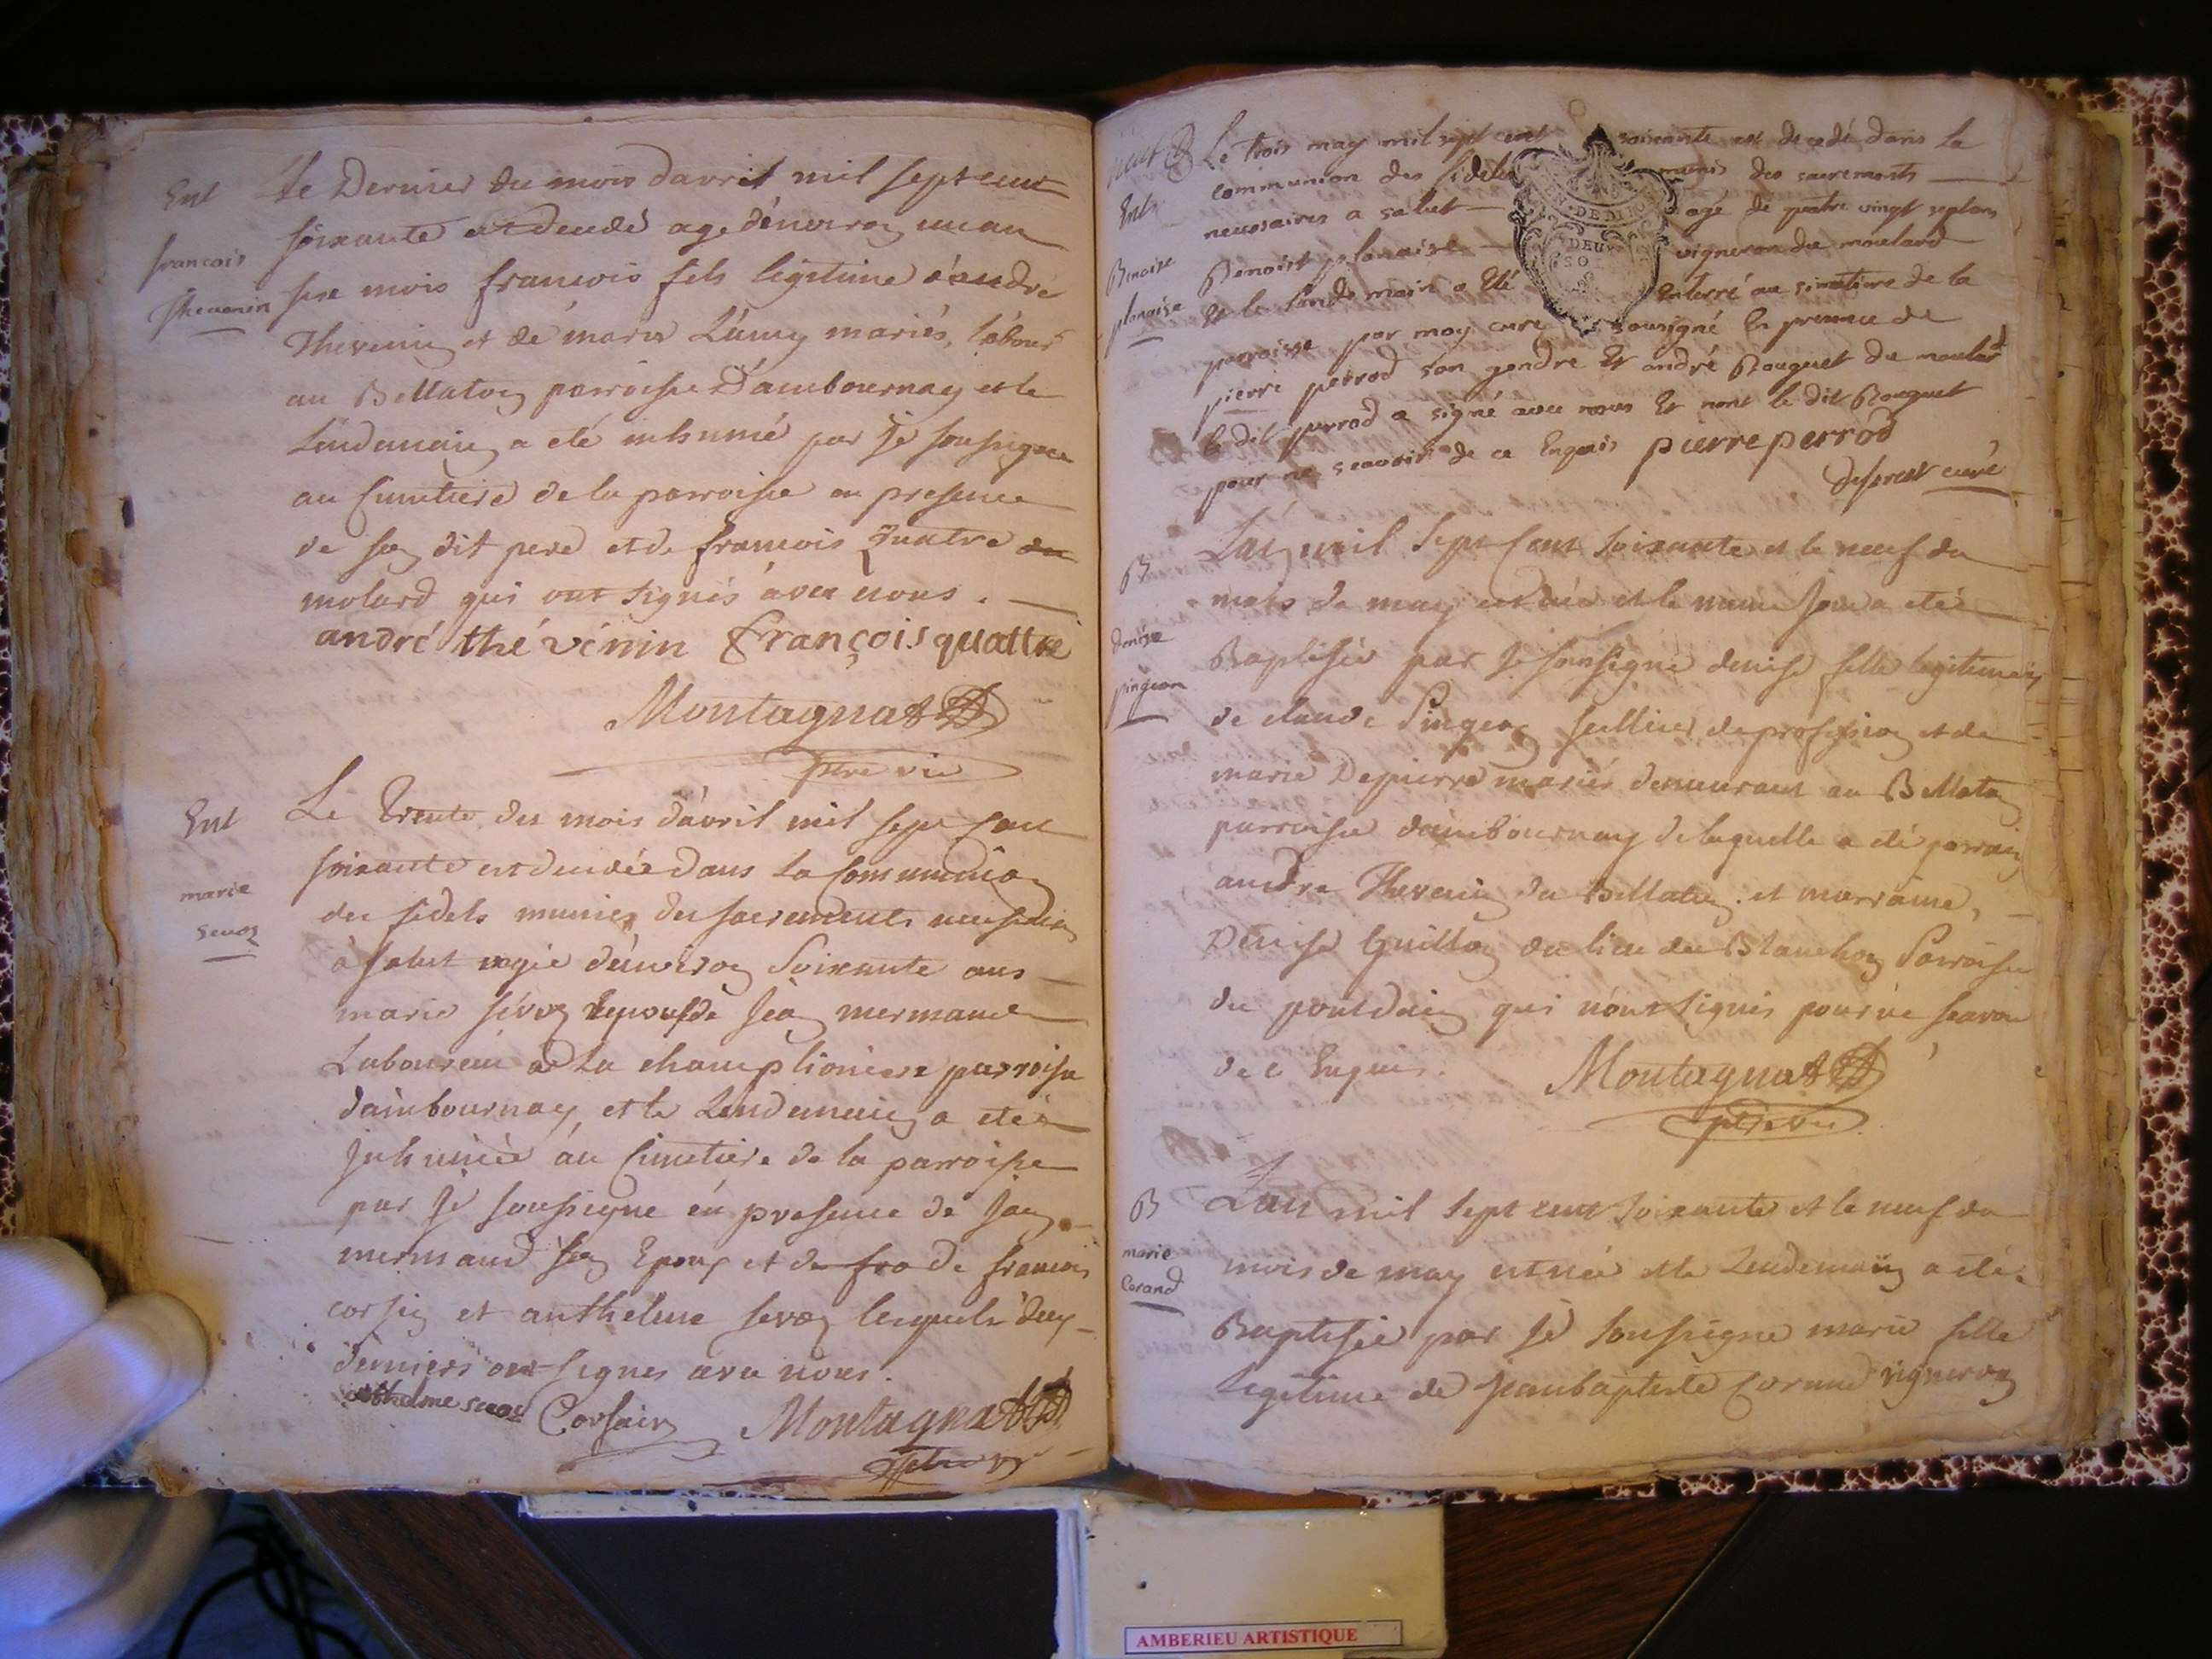 Ent
françois
Thevenin
Le Dernier du mois davril mil sept cent
soixante est decedé age d'environ un an
six mois françois fils legitime d'andré
Thevenin et de marie mariés, labour
au Bellaton parroisse D'ambournay et le
Lendemain a eté inhumé par Je soussigne
au Cimetiere de la parroisse en presence
de son dit pere et de francois Quatre du
molard qui ont signés avec nous.
andré thévénin françois quattre
Montagnat
ptre vic
Ent
marie
sevoz
Le Trente du mois d'avril mil sept Cent
soixante est decedée dans la Communion
des fidels munies des sacrements necessaires
à salut agée d'environ Soixante ans
marie sévoz Epouse de Jean mermand
Laboureur à la champlioniere parroisse
d'ambournay, et le Lendemain a eté
Inhumée au Cimetiere de la parroisse
par Je soussigne en presence de Jean
mermand son Epoux et de fra de francois
corsin et anthelme sevoz lesquels deux
derniers ont signes avec nous.
anthelme sevoz Corsain Montagnat
ptre vic
neuf
Ent
Benoise
planaise
Le trois may mil sept cent soixante est decedé dans la
communion des fideles munis des sacrements
necessaires a salut agé de quatre vingt sept ans
Benoist planaise vigneron du moulard
Et le lendemain a Eté Enterré au simetiere de la
parroisse par moy curé sousigné En presence de
pierre perrod son gendre Et andré Bouguet du moulard
le dit perrod a signé avec nous Et nont le dit Bouguet
pour ne scavoir de ce Enquis pierre perrod
deforest curé
GEN. DE DIJON
DEUX
SOLS
B
denise
pingeon
L'an mil Sept Cent Soixante et le neuf du
mois de may est née et le meme Jour a eté
Baptisée par Je soussigné denise fille legitime
de claude Pingeon sellier de profession et de
marie Depierre mariés demeurant au Bellaton
parroisse dambournay de laquelle a eté parrain
andre Thevenin du Bellaton et marraine,
Denise Guillon du lieu du Blanchon Parroisse
du pontdain qui n'ont signés pour ne scavoir
de ce Enquis. Montagnat
ptre vic
B
marie
Corand
L'an mil sept cent soixante et le neuf du
mois de may est née et le Lendemain a eté
Baptisée par Je soussigne marie fille
Legitime de Jean baptiste Corand vigneron
AMBERIEU ARTISTIQUE